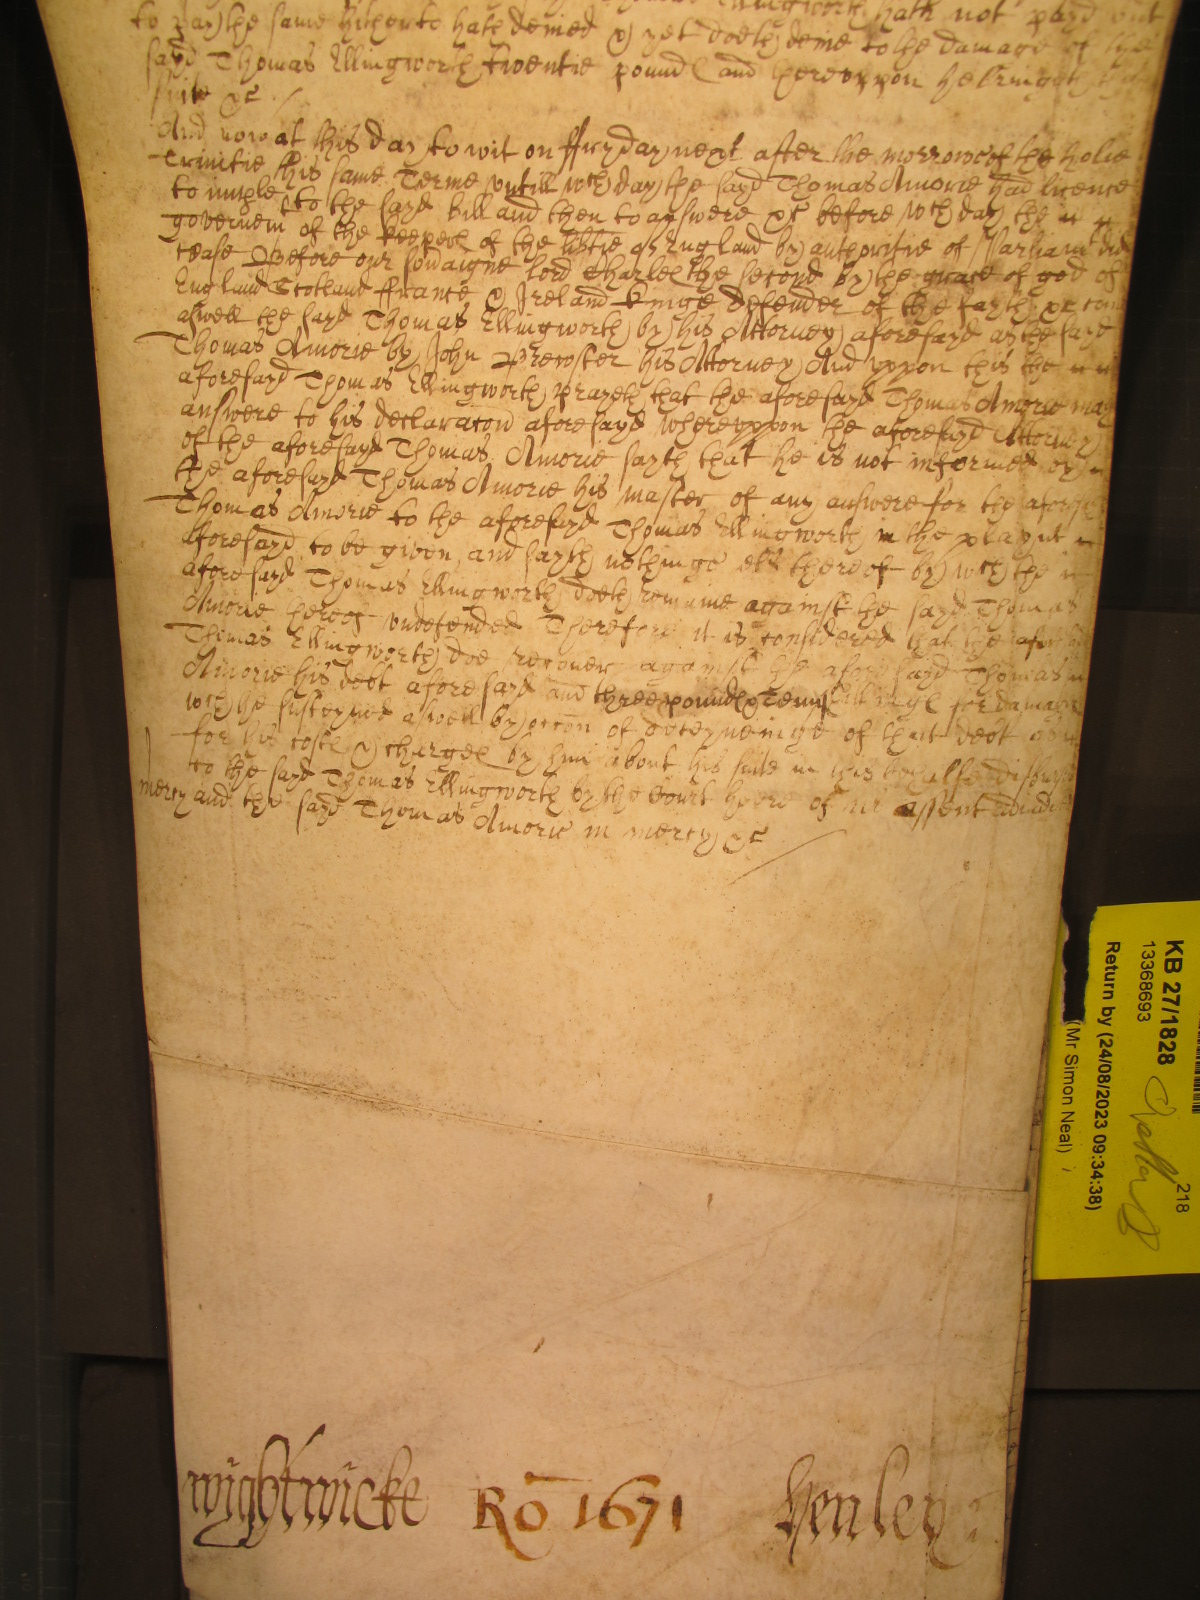 Ellingworth hath not payd but
to pay the same hitherto hath denied & yet doeth denie to the damage of the
sayd Thomas Ellingworth twentie pound and hereuppon he bringeth this
suite &c
And now at this day to wit on ffryday next after the morrow of the holie
Trinitie this same Terme untill wch day the sayd Thomas Amorie had licence
to imple to the sayd bill and then to answere &c before wch day the
governem of the keepers of the libtie of England by authoritie of Parliam did
cease Before our soveraigne lord Charles the second by the grace of god of
England Scotland ffrance & Ireland kinge defender of the fayth &c
aswell the sayd Thomas Ellingworth by his Attorney aforesayd as the sayd
Thomas Amorie by John Prewster his Attorney And uppon this the
aforesayd Thomas Ellingworth prayeth that the aforesayd Thomas Amorie may
answere to his declaracon aforesayd whereuppon the aforesayd Attorney
of the aforesayd Thomas Amorie sayth that he is not informed by
the aforesayd Thomas Amorie his master of any answere for the
Thomas Amorie to the aforesayd Thomas Ellingworth in the playnt
aforesayd to be given and sayth nothinge els thereof by wch the
aforesayd Thomas Ellingworth doeth remaine against the sayd Thomas
Amorie hereof undefended Therefore it is considered that the
Thomas Ellingworth doe recover against the aforesayd Thomas
Amorie his debt aforesayd and three pounds & Tenn shillings for damages
wch he susteyned aswell by occon of deteyneinge of that debt as
for his costs & charges by him about his suite in this behalfe
to the sayd Thomas Ellingworth by the Court heere of his assent
mercy and the sayd Thomas Amorie in mercy &c
wightwicke Ro 1671 Henley
KB 27/1828
13368693
218
Return by (24/08/2023 09:34:38)
(Mr Simon Neal)